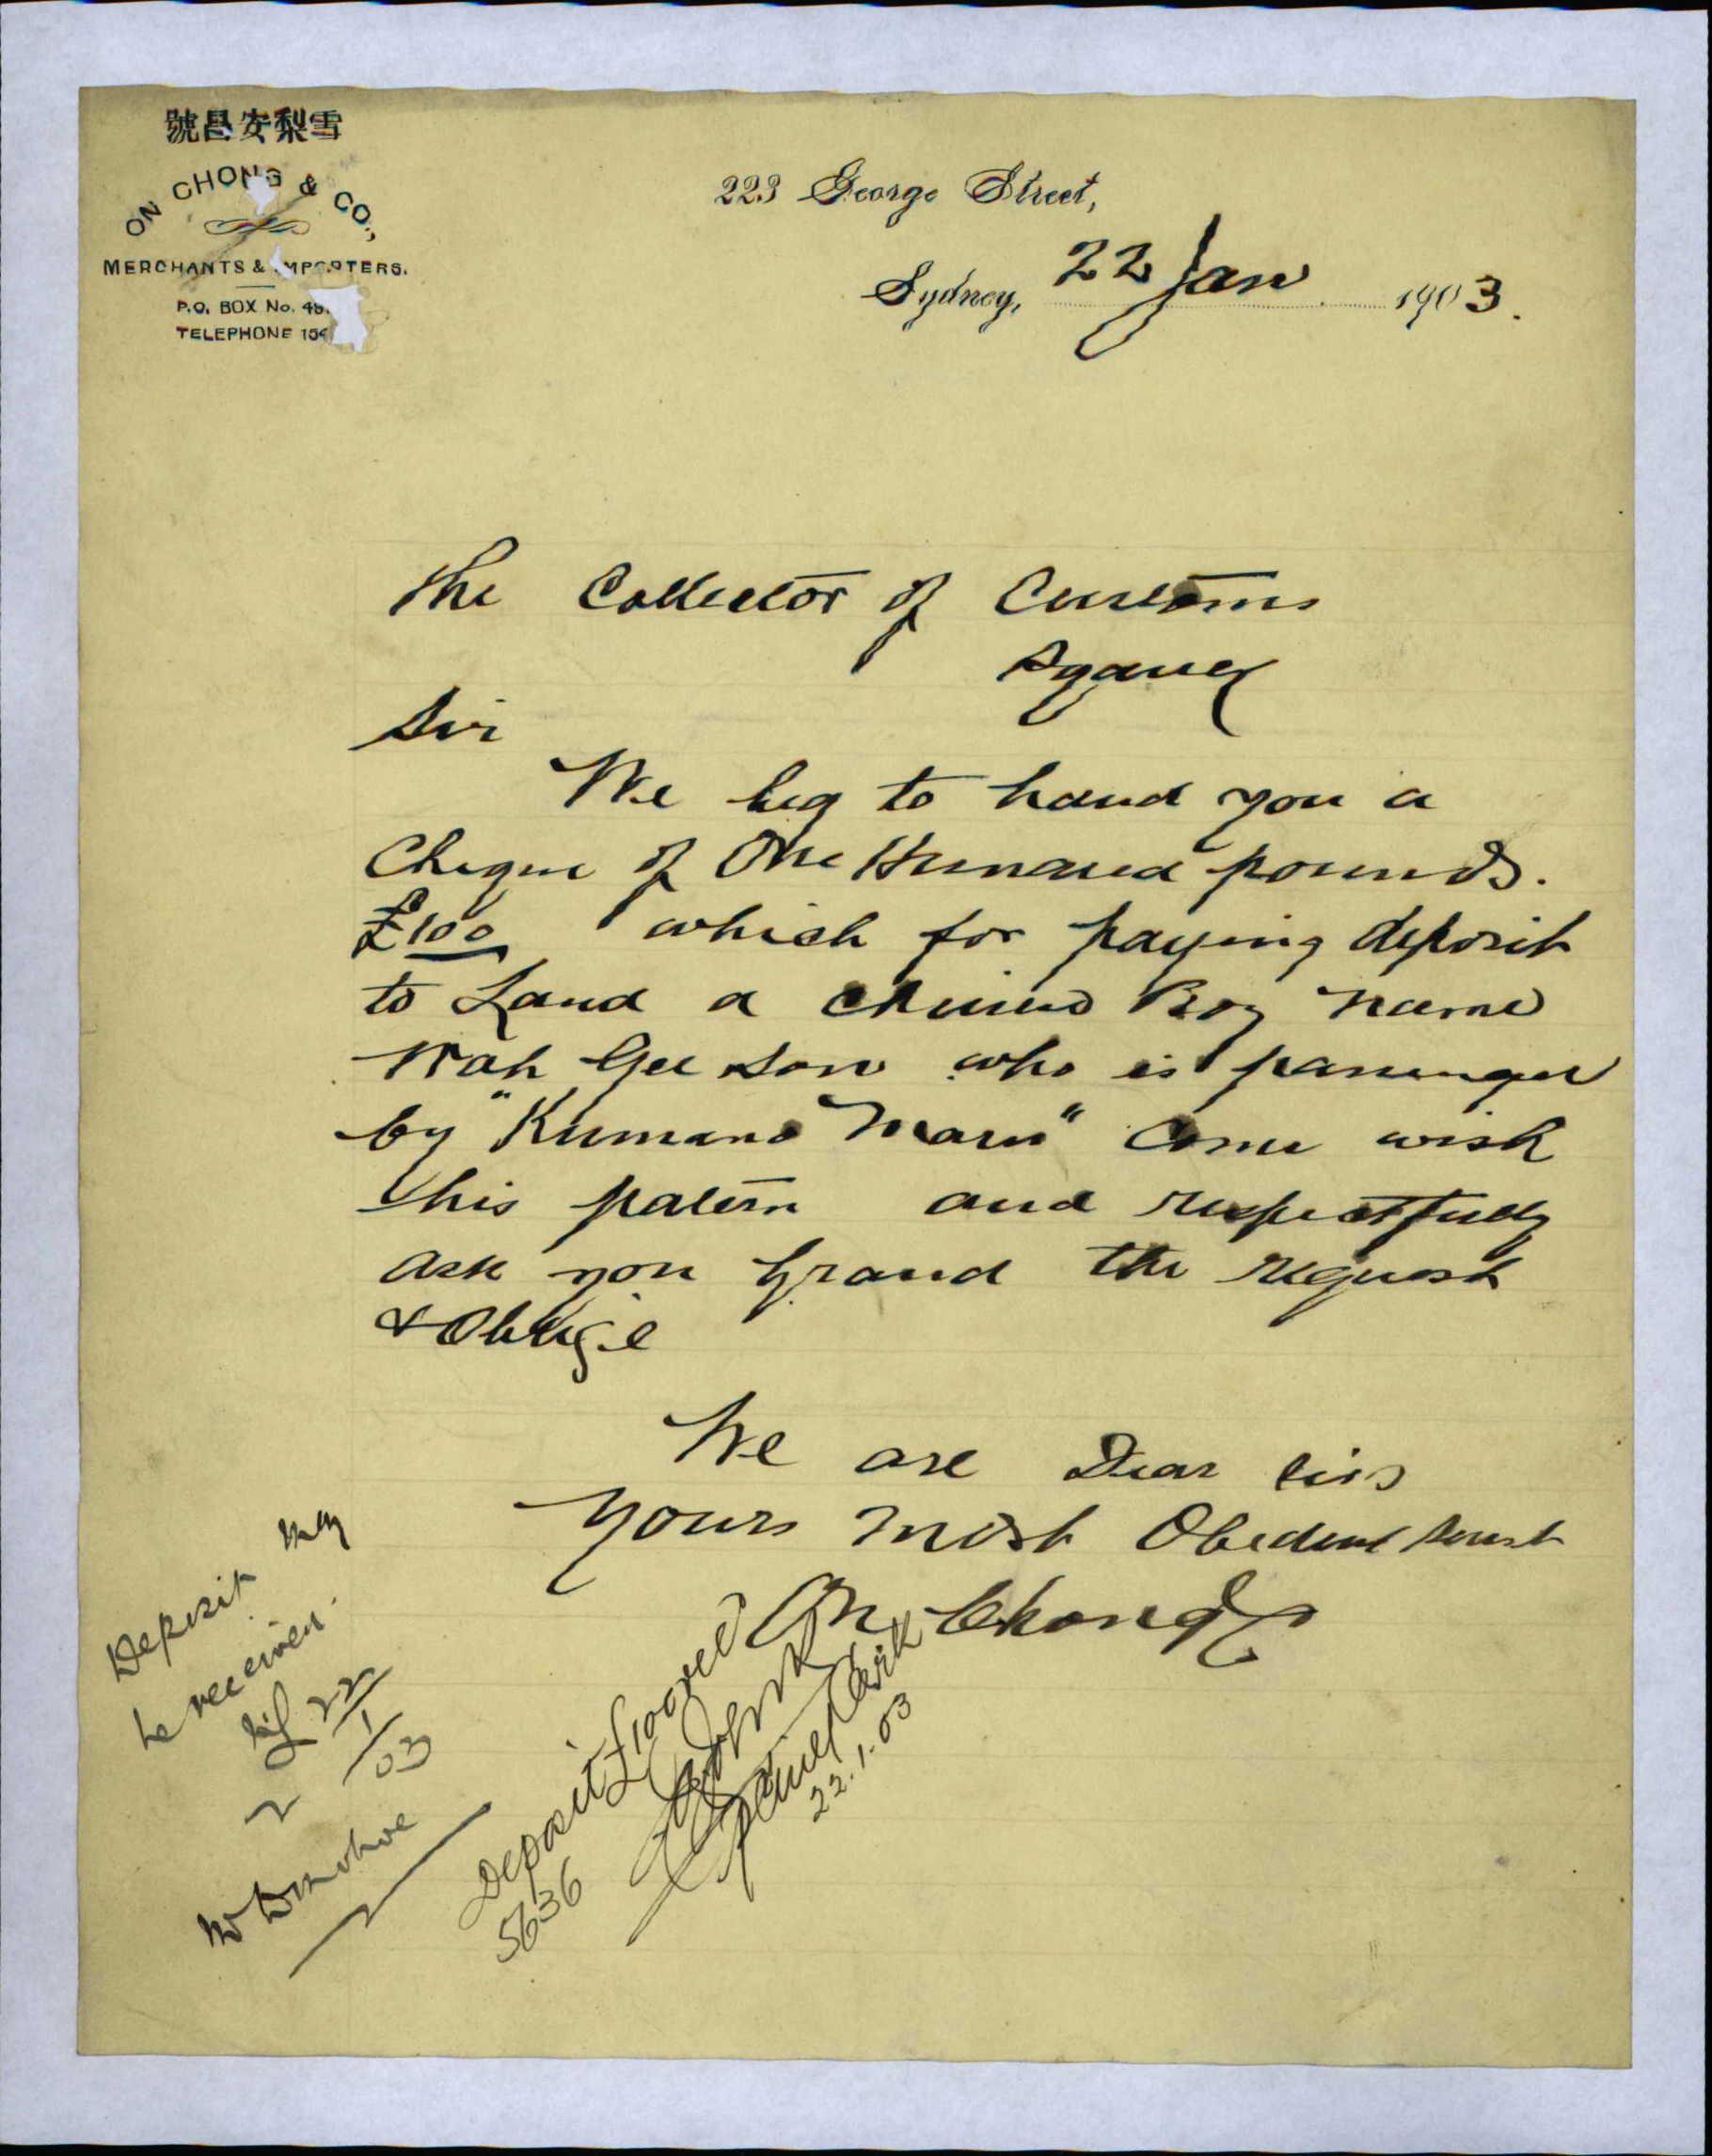 號昌安梨雪
ON CHONG & CO.,
MERCHANTS & IMPORTERS.
P.O. BOX No. 48
TELEPHONE 154
223 George Street,
Sydney, 22 Jan 1903.
The Collector of Customs
Sydney
Sir
We beg to hand you a
Cheque of One Hundred pounds.
£100 which for paying deposit
to Land a Chinese Boy name
Wah Gee Son who is passenger
by "Kumano Maru" Come wish
this patern and respectfully
ask you grand the request
& Oblige
We are Dear Sirs
Yours most Obedient
On Chong
Deposit may
be received.
22/1/03
Mr Donohoe
Deposit £100 recd
5636
22.1.03